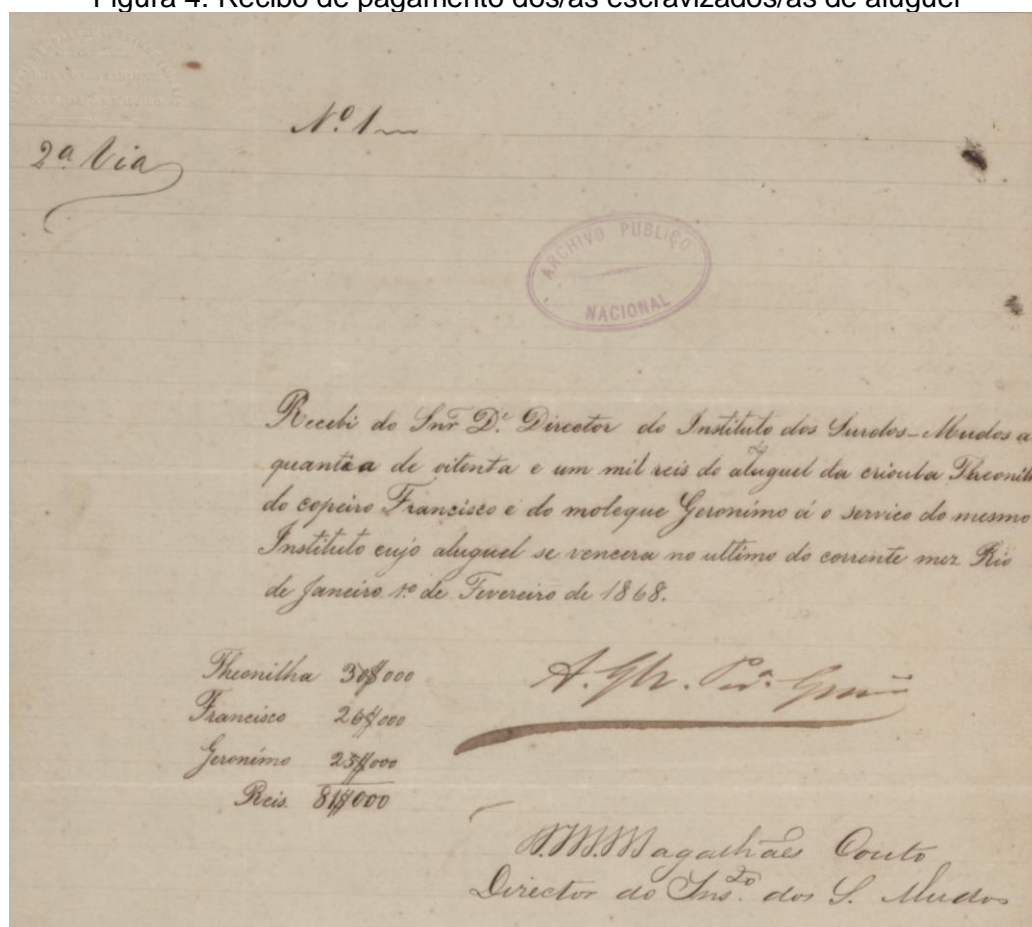 Figura 4: Recibo de pagamento dos/as escravizados/as de aluguel
Nº 1
2ª Via
ARCHIVO PUBLICO
NACIONAL
Recebi do Snr Dr. Director do Instituto dos Surdos-Mudos a
quantia de oitenta e um mil reis do aluguel da crioula Theonilh
do copeiro Francisco e do moleque Geronimo á o servico do mesmo
Instituto cujo aluguel se vencera no ultimo do corrente mez Rio
de Janeiro 1º de Fevereiro de 1868.
Theonilha 30$000
Francisco 26$000
Geronimo 25$000
Reis. 81$000
Magalhães Couto
Director do Insto. dos S. Mudos